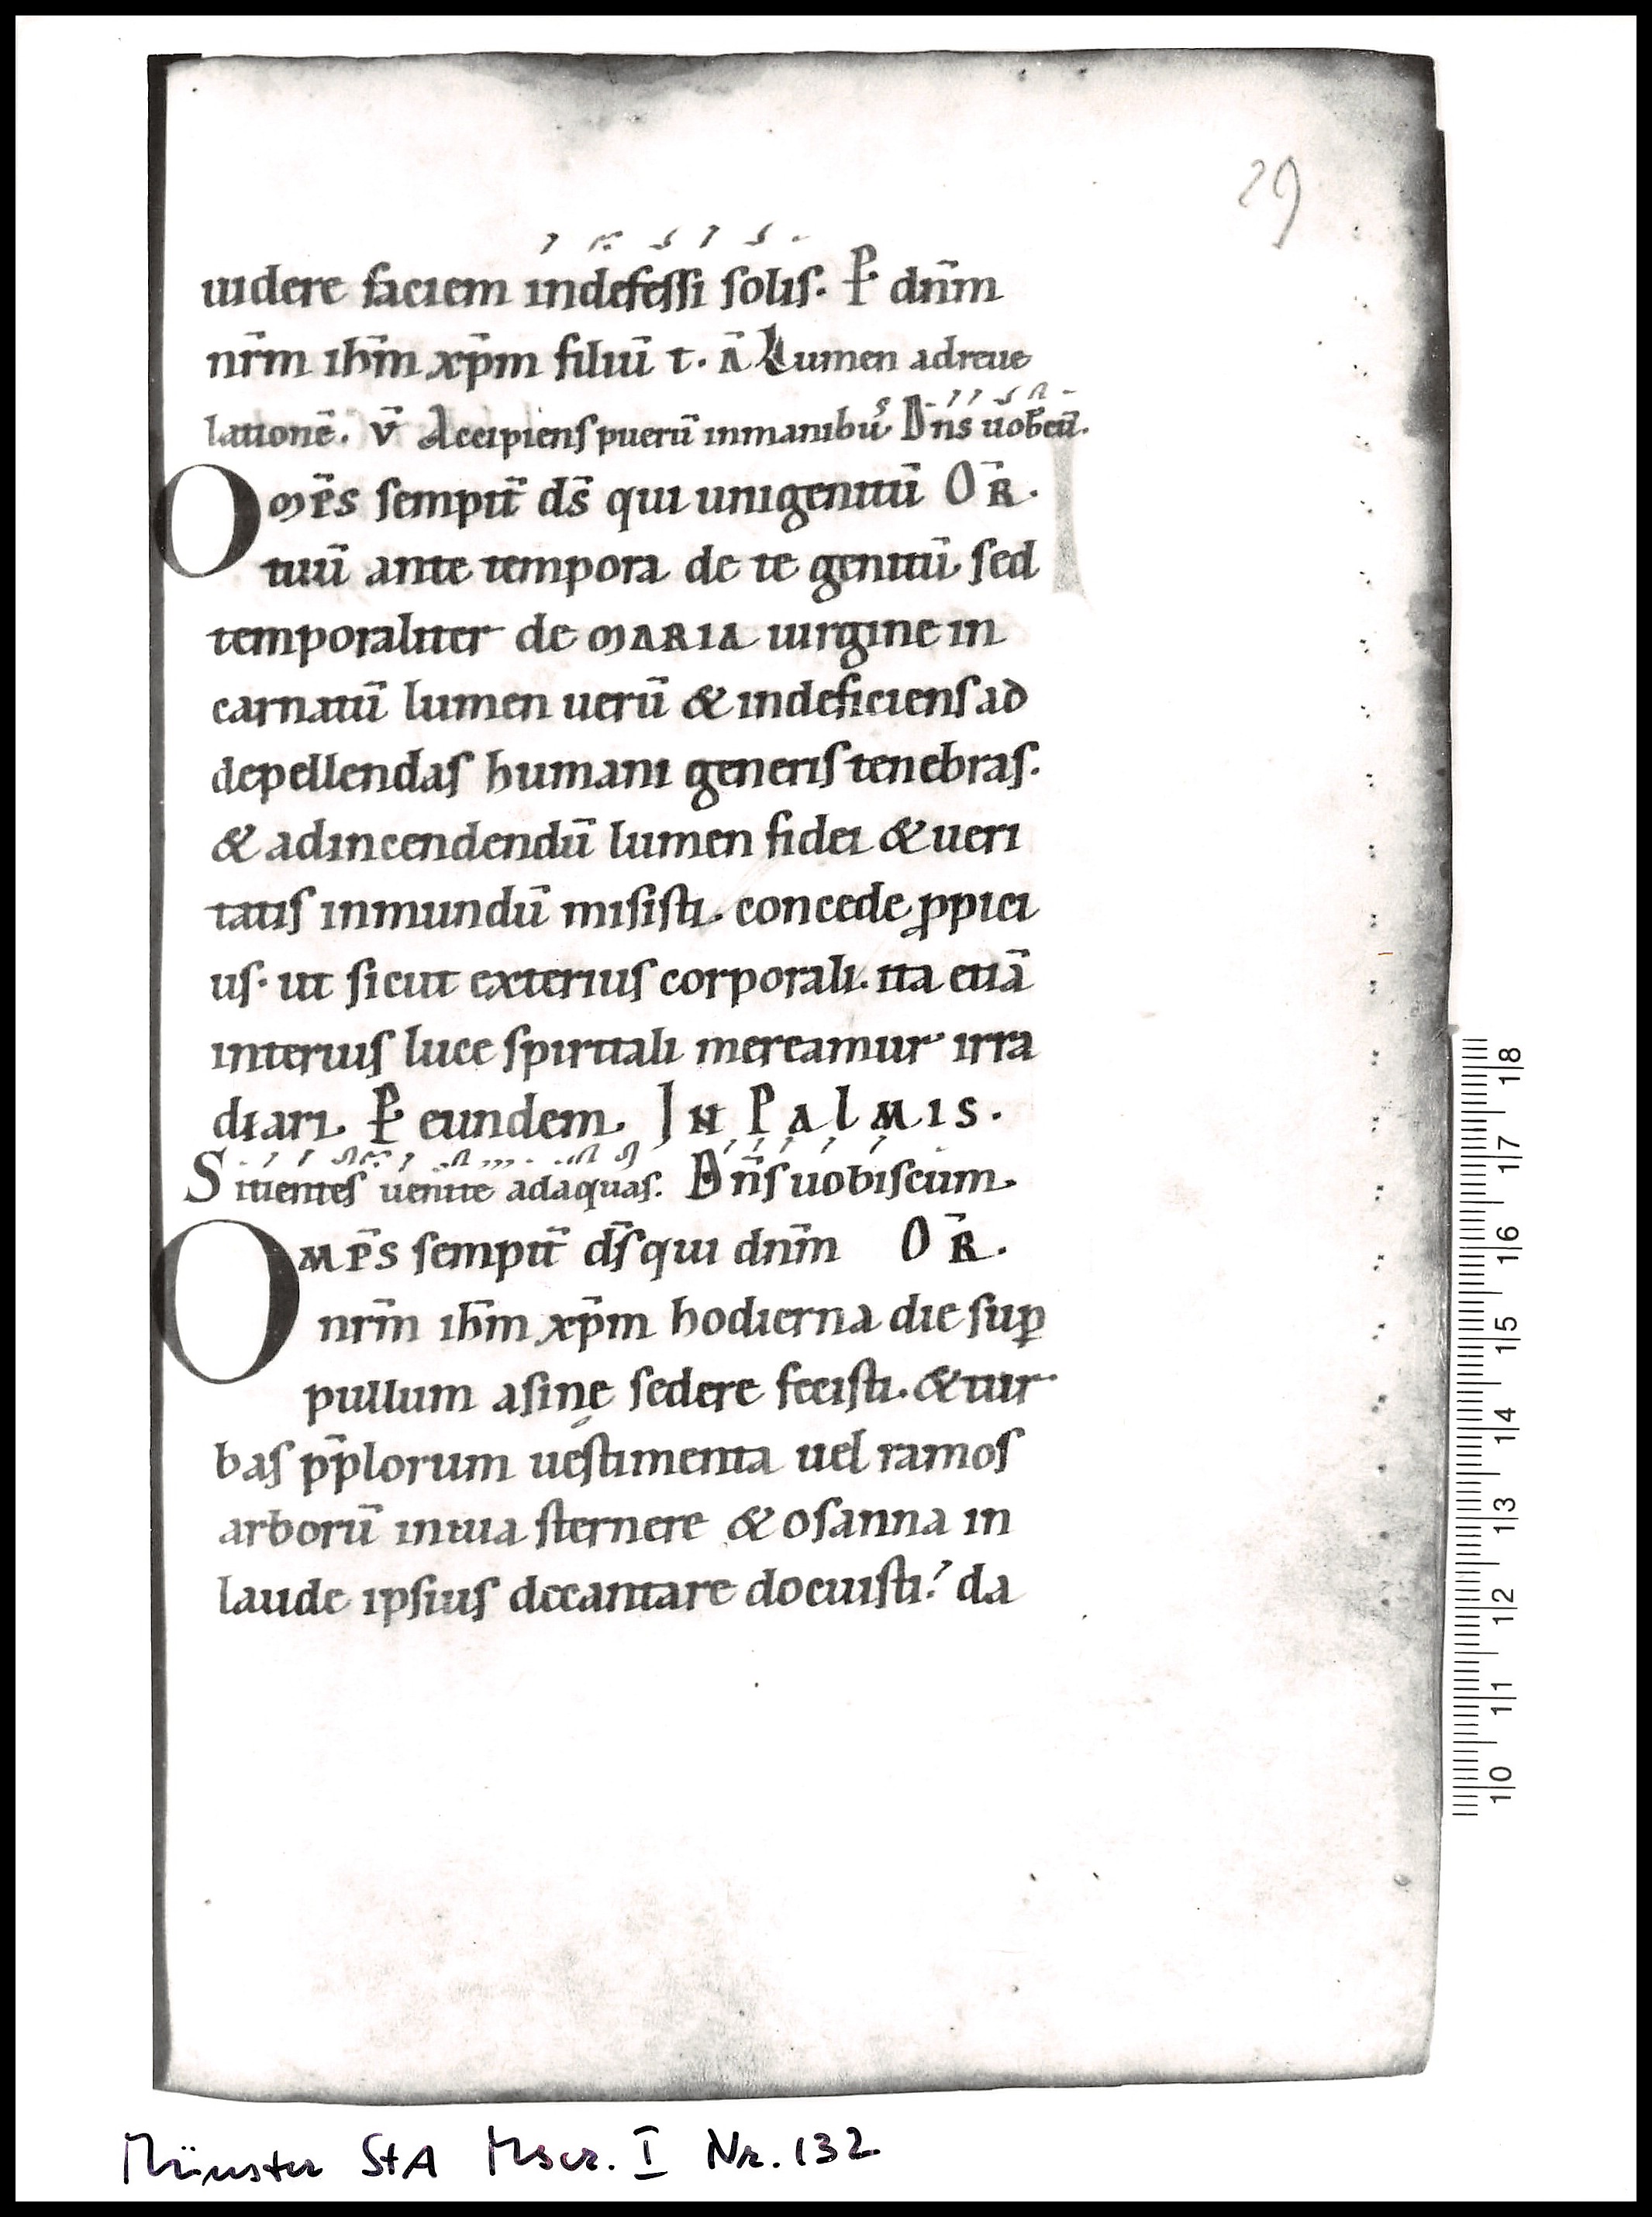 29
uidere faciem indefessi solis. P̱ dñm
nr̃m ih̃m xp̃m filiũ t. ã Lumen ad reue
lationẽ. ṽ Accipiens puerũ inmanibus Dñs uob̃cũ.
Om̃ps sempit̃ ds̃ qui unigenitũ Or̃.
tuũ ante tempora de te genitũ sed
temporaliter de MARIA uirgine in
carnatũ lumen uerũ & indeficiens ad
depellendas humani generis tenebras.
& adincendendũ lumen fidei & ueri
tatis inmundũ misisti. concede ꝓpici
us. ut sicut exterius corporali. ita etiã
interius luce spiritali mereamur irra
diari. P̱ eundem. IN PALMIS.
Sitientes uenite adaquas. Dñs uobiscum.
Omp̃s sempit̃ ds̃ qui dñm Or̃.
nr̃m ih̃m xp̃m hodierna die suꝑ
pullum asinę sedere fecisti. & tur
bas pp̃lorum uestimenta uel ramos
arborũ inuia sternere & osanna in
laude ipsius decantare docuisti? da
1|8
1|7
1|6
1|5
1|4
1|3
1|2
1|1
1|0
Münster StA Mscr. I Nr. 132